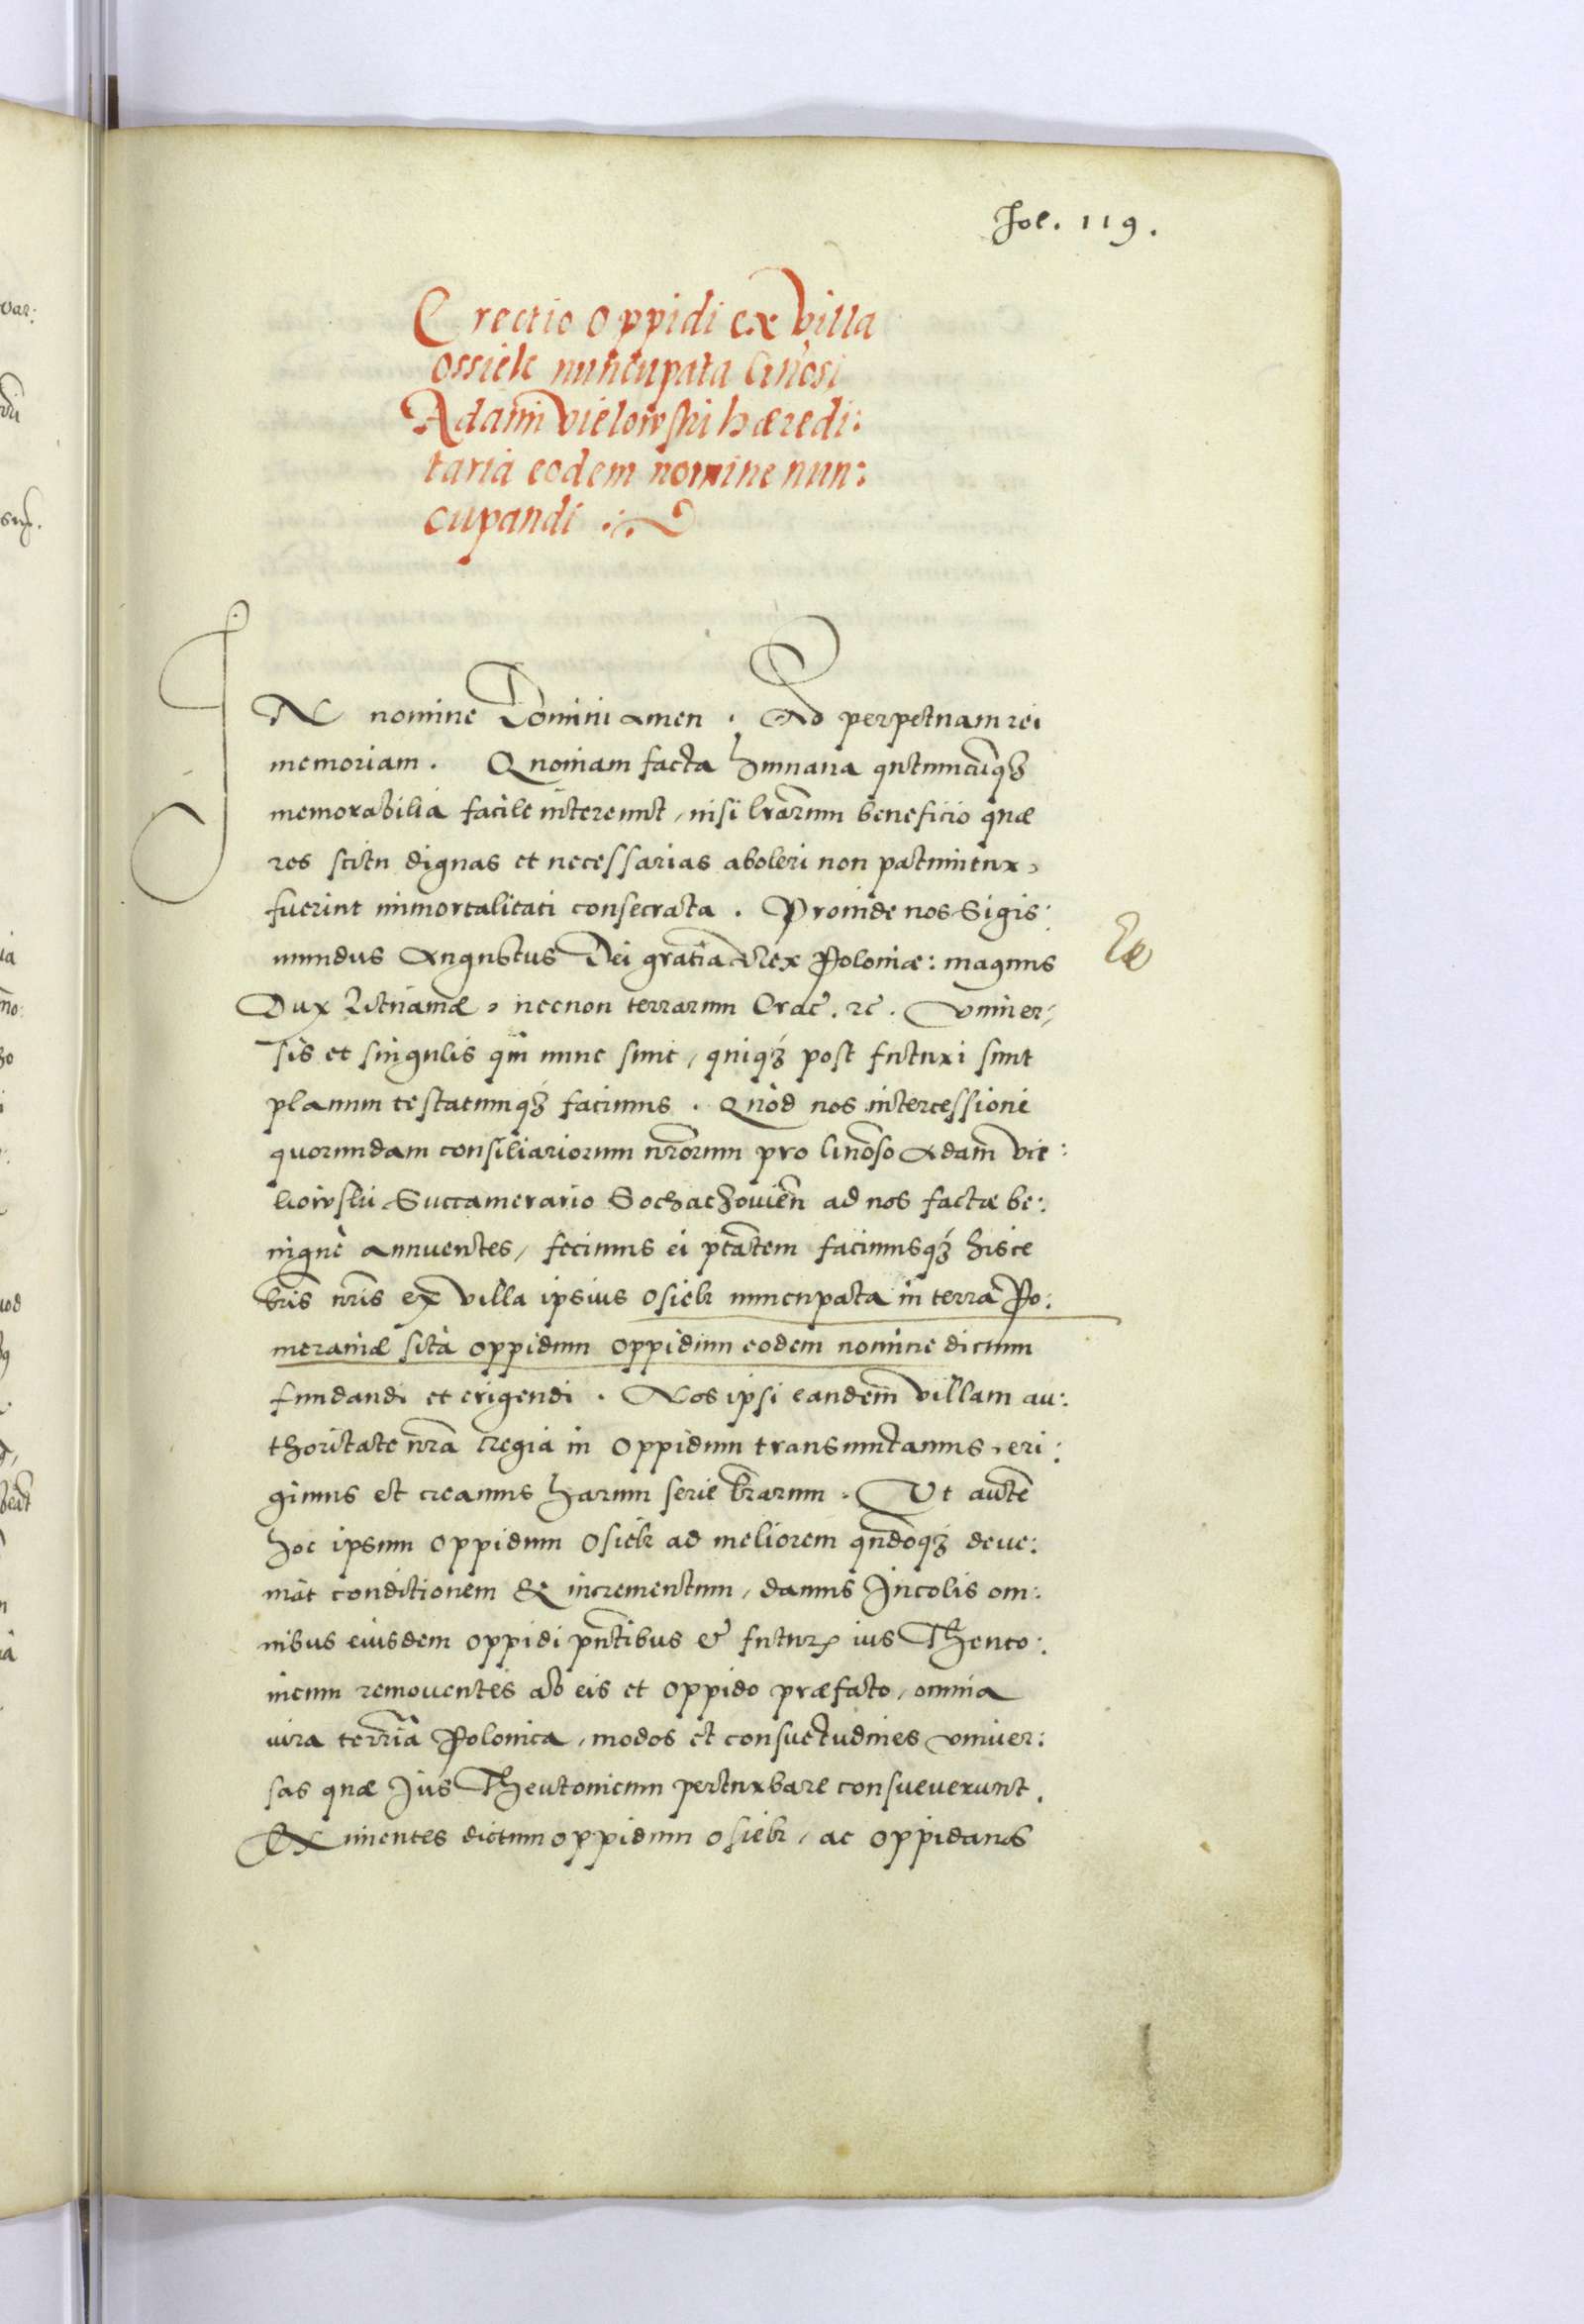 Fol. 119.
Erectio oppidi ex villa
Ossiek nuncupata Gñosi
Adami Vielowski hæredi:
taria eodem nomine nun:
cupandi
IN nomine Domini amen. Ad perpetuam rei
memoriam. Quoniam facta humana qũtumcũqʒ
memorabilia facile intereunt, nisi lrãrum beneficio quæ
res scitu dignas et necessarias aboleri non patiuntur,
fuerint immortalitati consecrata. Proinde nos Sigis:
mundus Augustus Dei gratia Rex Poloniæ: magnus
Dux Lituaniæ, necnon terrarum Crac̃. zc̃. Vniuer,
sis et singulis qui nunc sunt, quiqʒ post futuri sunt
planum testatumqʒ facimus. Quòd nos intercessioni
quorundam consiliariorum nr̃orum pro Gñoso Adam̃ Vie:
liowski Succamerario Sochaczouieñ ad nos factæ be:
nignè annuentes, fecimus ei ptãtem facimusqʒ hisce
lrĩs nrĩs ex villa ipsius Osiek nuncupata in terra Po:
meraniæ sità oppidum oppidum eodem nomine dictum
fundandi et erigendi. Nos ipsi eandem villam au:
thoritate nr̃a regia in oppidum transmutamus, eri:
gimus et creamus harum serie lrãrum. Vt autẽ
hoc ipsum oppidum Osiek ad meliorem qñdoqʒ deue:
niat conditionem & incrementum, damus Incolis om:
nibus eiusdem oppidi pñtibus et futur. ius Theuto:
nicum remouentes ab eis et oppido præfato, omnia
iura terr̃ia Polonica, modos et consuetudines vniuer:
sas quæ Jus Theutonicum perturbare consueuerunt.
Eximentes dictum oppidum Osiek, ac oppidanos